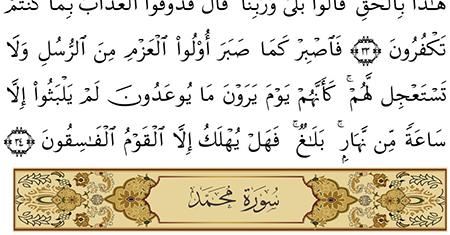 هَٰذَا بِالْحَقِّ قَالُوا بَلَىٰ وَرَبِّنَا قَالَ فَذُوقُوا الْعَذَابَ بِمَا كُنتُمْ
تَكْفُرُونَ ﴿٣٣﴾ فَاصْبِرْ كَمَا صَبَرَ أُوْلُواْ الْعَزْمِ مِنَ الرُّسُلِ وَلَا
تَسْتَعْجِل لَّهُمْ ۚ كَأَنَّهُمْ يَوْمَ يَرَوْنَ مَا يُوعَدُونَ لَمْ يَلْبَثُواْ إِلَّا
سَاعَةً مِّن نَّهَارٍ ۚ بَلَاغٌ ۚ فَهَلْ يُهْلَكُ إِلَّا الْقَوْمُ الْفَاسِقُونَ ﴿٣٤﴾
سُورَة مُحَمَّد